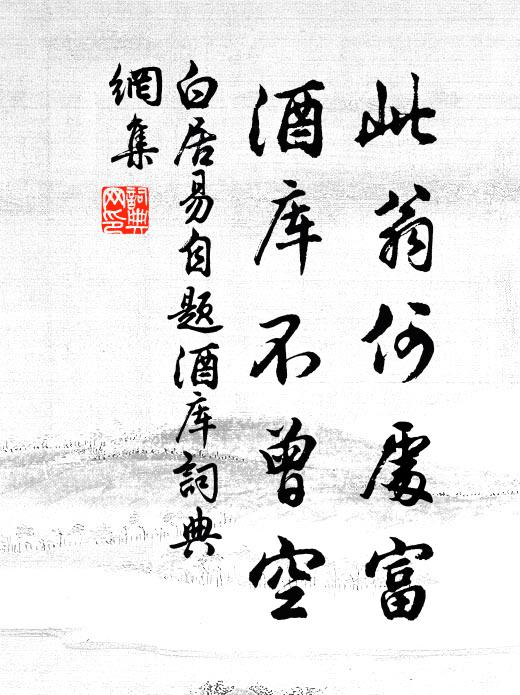 此翁何處富
酒库不曾空
白居易自题酒库詞典
網集
詞典网印